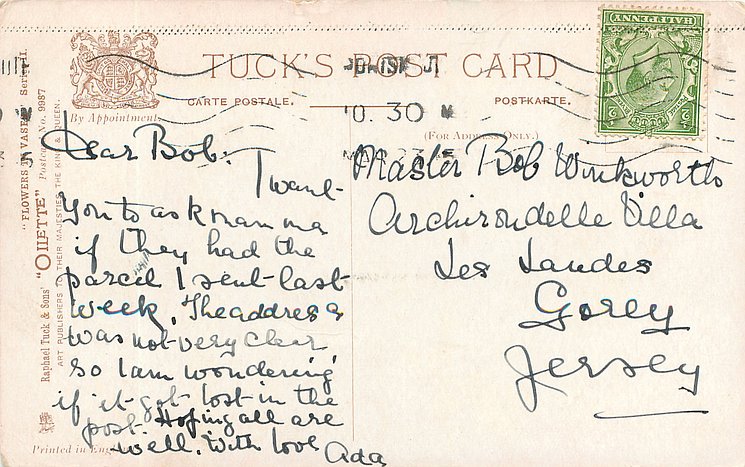 TUCK'S POST CARD
CARTE POSTALE.
POSTKARTE.
By Appointment.
(FOR ADDRESS ONLY.)
HALFPENNY
POSTAGE
10.30
Dear Bob:
I want
you to ask mamma
if they had the
parcel I sent last
week. The address
was not very clear
so I am wondering
if it got lost in the
post. Hoping all are
well. With love
Ada
Master Bob Winkworth
Archirondelle Villa
Les Landes
Gorey
Jersey
Raphael Tuck & Sons' "OILETTE" Postcard No. 9987
"FLOWERS IN VASES" Series II.
ART PUBLISHERS TO THEIR MAJESTIES THE KING & QUEEN.
Printed in